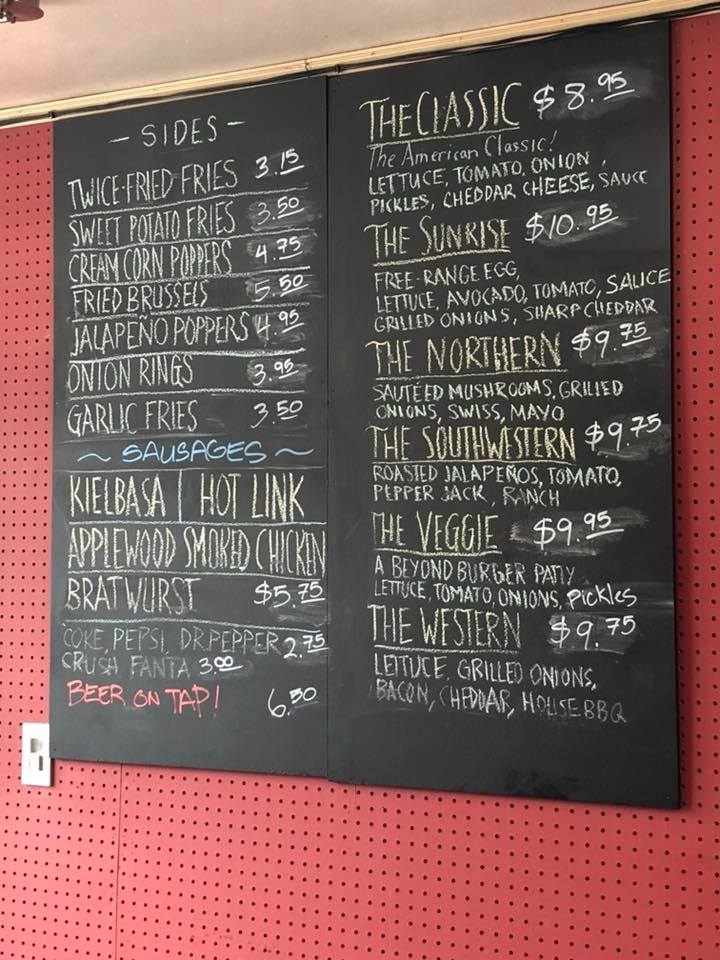 - SIDES -
TWICE-FRIED FRIES 3.15
SWEET POTATO FRIES 3.50
CREAM CORN POPPERS 4.75
FRIED BRUSSELS 5.50
JALAPEÑO POPPERS 4.95
ONION RINGS 3.95
GARLIC FRIES 3.50
~ SAUSAGES ~
KIELBASA | HOT LINK
APPLEWOOD SMOKED CHICKEN
BRATWURST $5.75
COKE, PEPSI, DR.PEPPER 2.75
CRUSH FANTA 3.00
BEER ON TAP! 6.50
THE CLASSIC $8.95
The American Classic!
LETTUCE, TOMATO, ONION,
PICKLES, CHEDDAR CHEESE, SAUCE
THE SUNRISE $10.95
FREE-RANGE EGG,
LETTUCE, AVOCADO, TOMATO, SAUCE
GRILLED ONIONS, SHARP CHEDDAR
THE NORTHERN $9.75
SAUTÉED MUSHROOMS, GRILLED
ONIONS, SWISS, MAYO
THE SOUTHWESTERN $9.75
ROASTED JALAPEÑOS, TOMATO,
PEPPER JACK, RANCH
THE VEGGIE $9.95
A BEYOND BURGER PATTY
LETTUCE, TOMATO, ONIONS, Pickles
THE WESTERN $9.75
LETTUCE, GRILLED ONIONS,
BACON, CHEDDAR, HOUSE BBQ